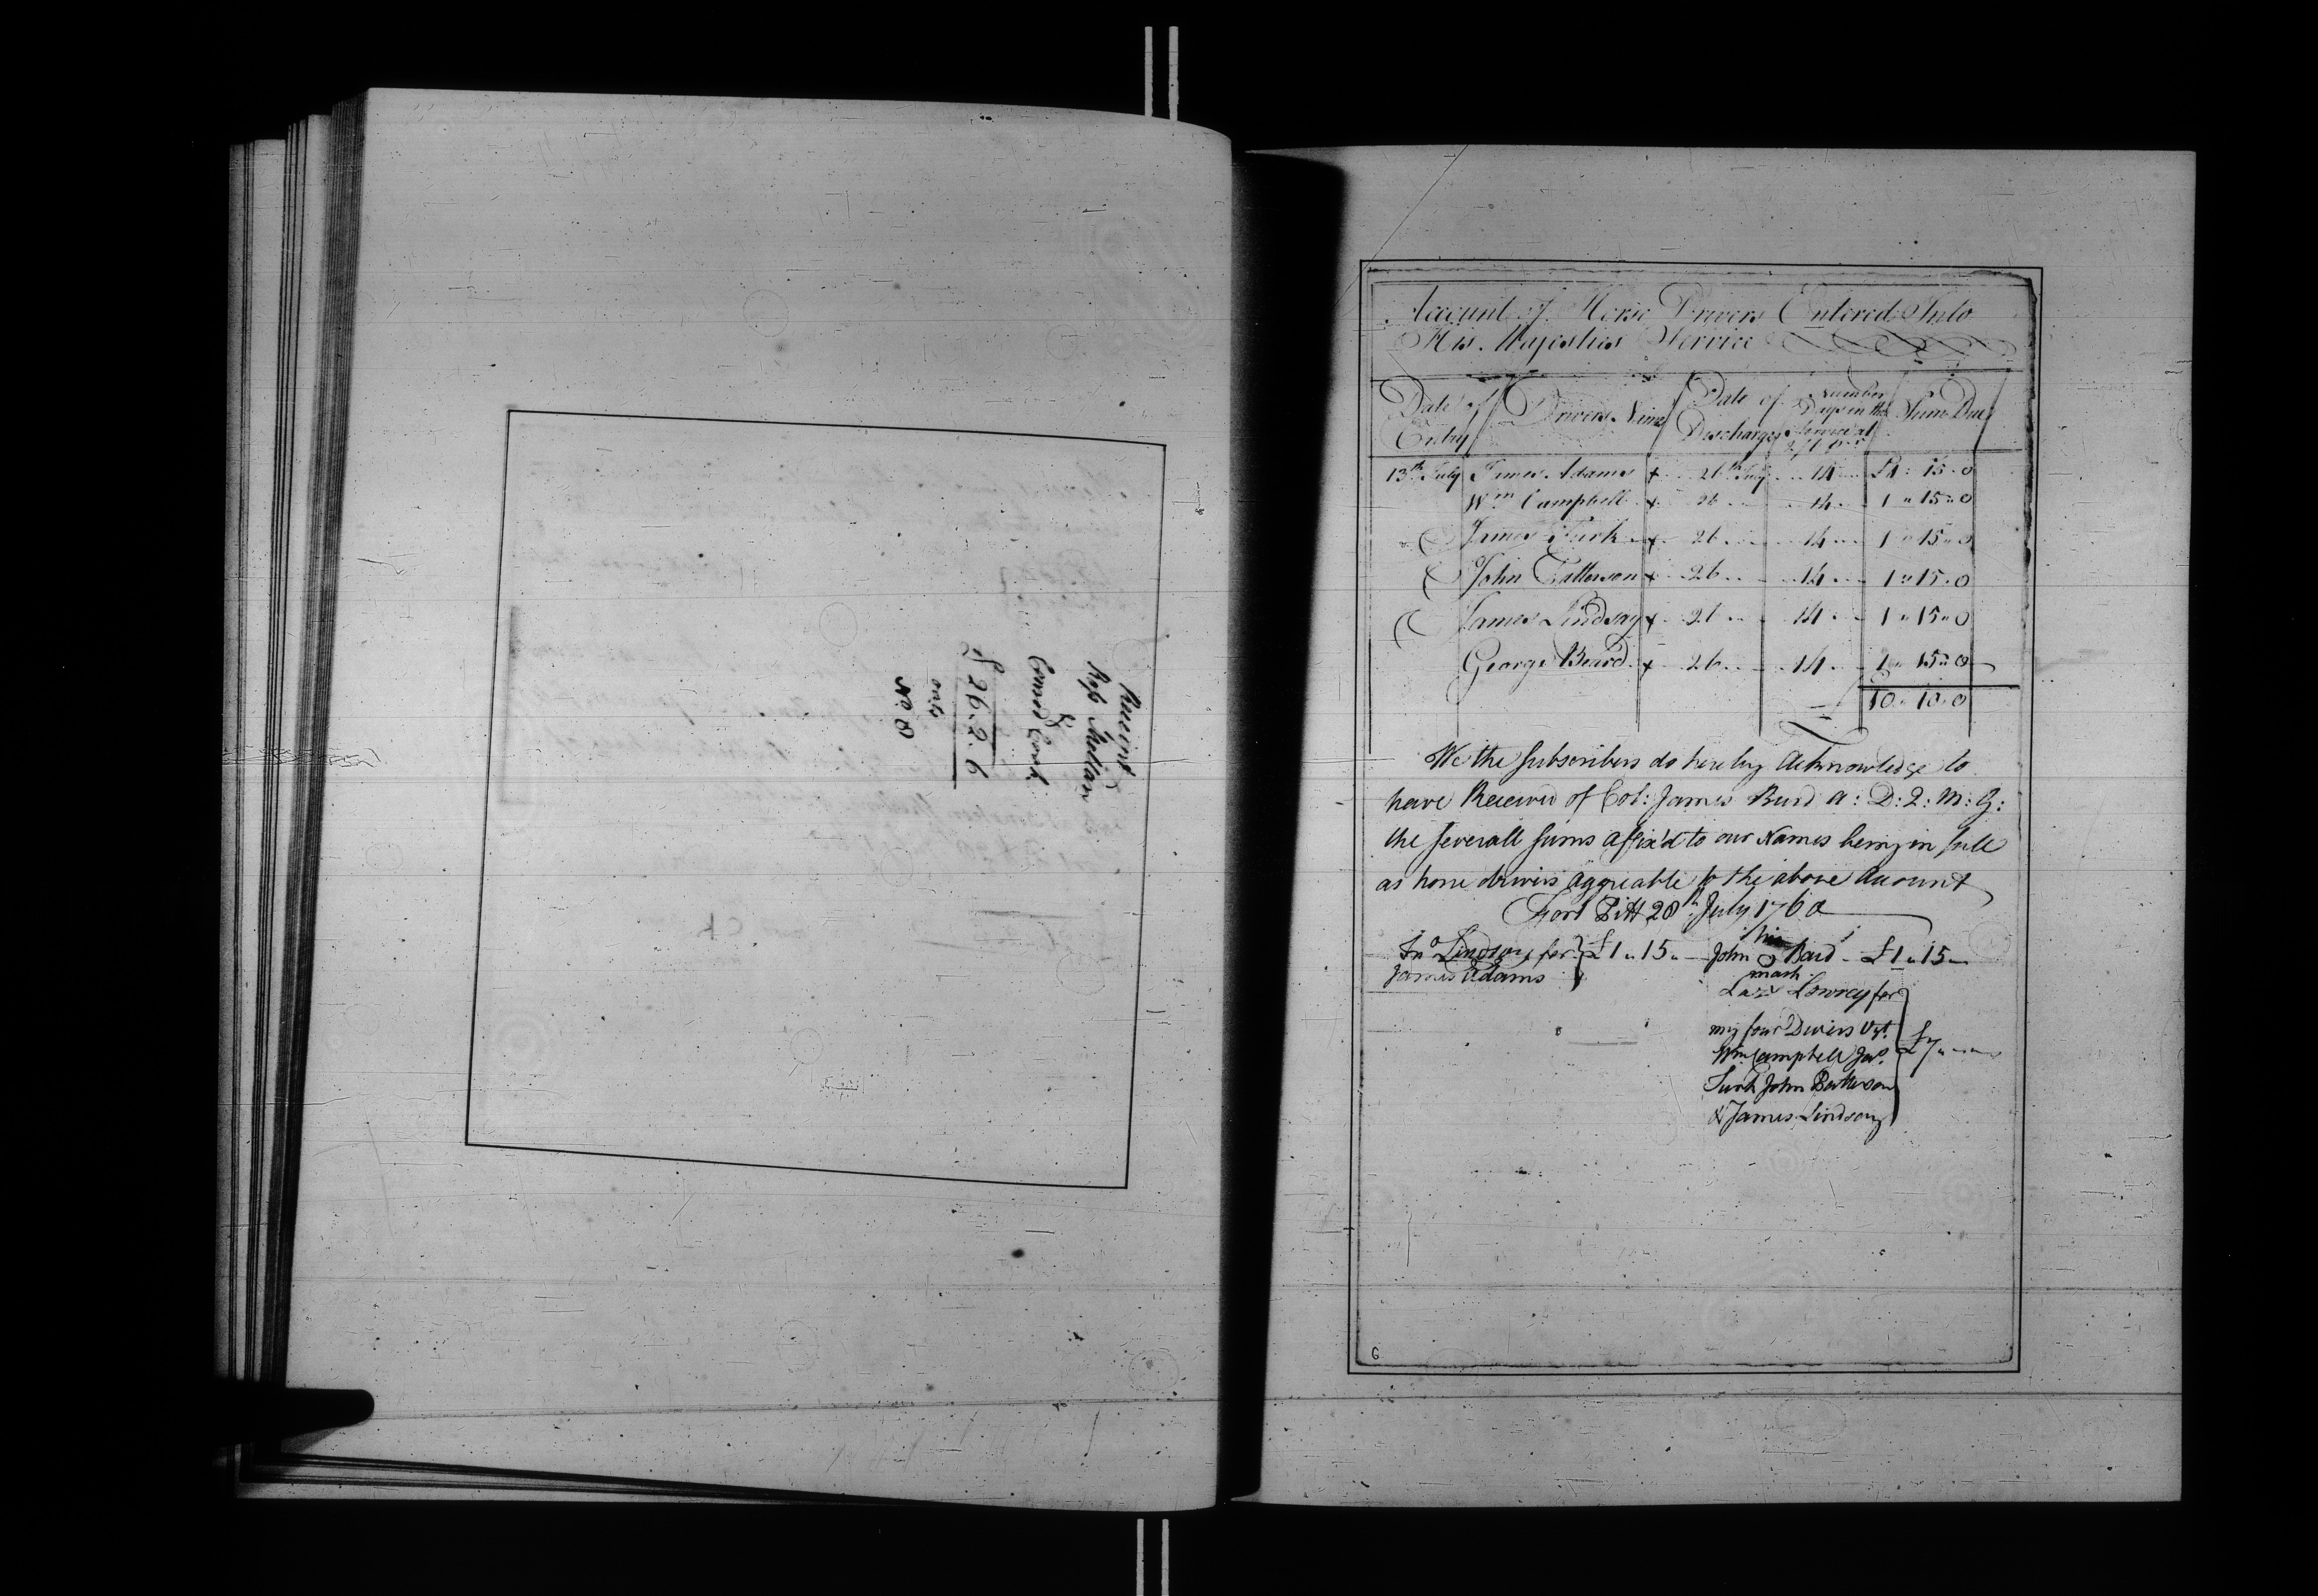 Receipt
Ross Mellan
&
Conrod Cork
£ 26.2.6
No. 8
Account of Horse Drivers Entered Into
His Majesties Service
Date of Entry Drivers Name Date of Discharge Number Days in the Service at Sum Due
13th July James Adams + 26th July 14 £1: 15. 0
Wm Campbell + 26 14 1 " 15 " 0
James Turk + 26 14 1 " 15 " 0
John Patterson + 26 14 1 " 15 . 0
James Lindsay + 26 14 1 " 15 " 0
George Beard + 26 14 1 " 15 " 0
10 " 10 " 0
We the Subscribers do hereby Acknowledge to
have Received of Col: James Burd A: D: Q: M: G:
the severall sums affix'd to our Names being in full
as horse drivers aggreable to the above Account
Fort Pitt 28th July 1760
Jno Lindsay for } £1 " 15 "
James Adams
his
John O Bard - £1 " 15 "
mark
Lazs Lowrey for
my four Drivers Vizt.
Wm Campbell Jas. } £7 "
Turk John Patterson
& James Lindsay
6